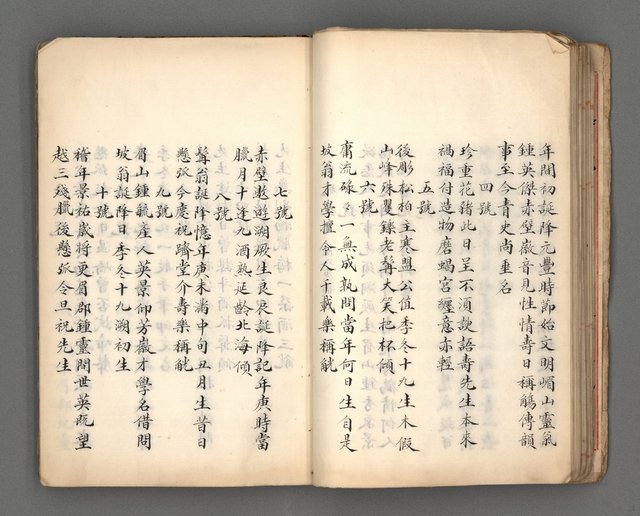 年間初誕降元豐時節始文明嵋山靈氣
鍾英傑赤壁徽音見性情壽日稱觴傳韻
事至今青史尚重名
四號
珍重花豬此日呈不須諛語壽先生本來
禍福付造物磨蝎宮纏意亦輕
五號
後彫松柏主寒盟公值季冬十九生木假
山峰殊矍鑠老髯大笑把杯傾
六號
庸流碌々一無成孰問當年何日生自是
坡翁才學擅令人千載樂稱觥
七號
赤壁遨遊溯厥生良辰誕降記年庚時當
臘月十逢九酒熟延齡北海傾
八號
髯翁誕降憶年庚未滿中旬丑月生昔日
懸弧今慶祝躋堂介壽樂稱觥
九號
眉山鍾毓產人英景仰芳徽才學名借問
坡翁誕降日季冬十九溯初生
十號
稽年景祐歲將更眉郡鍾靈間世英既望
越三殘臘後懸弧令旦祝先生